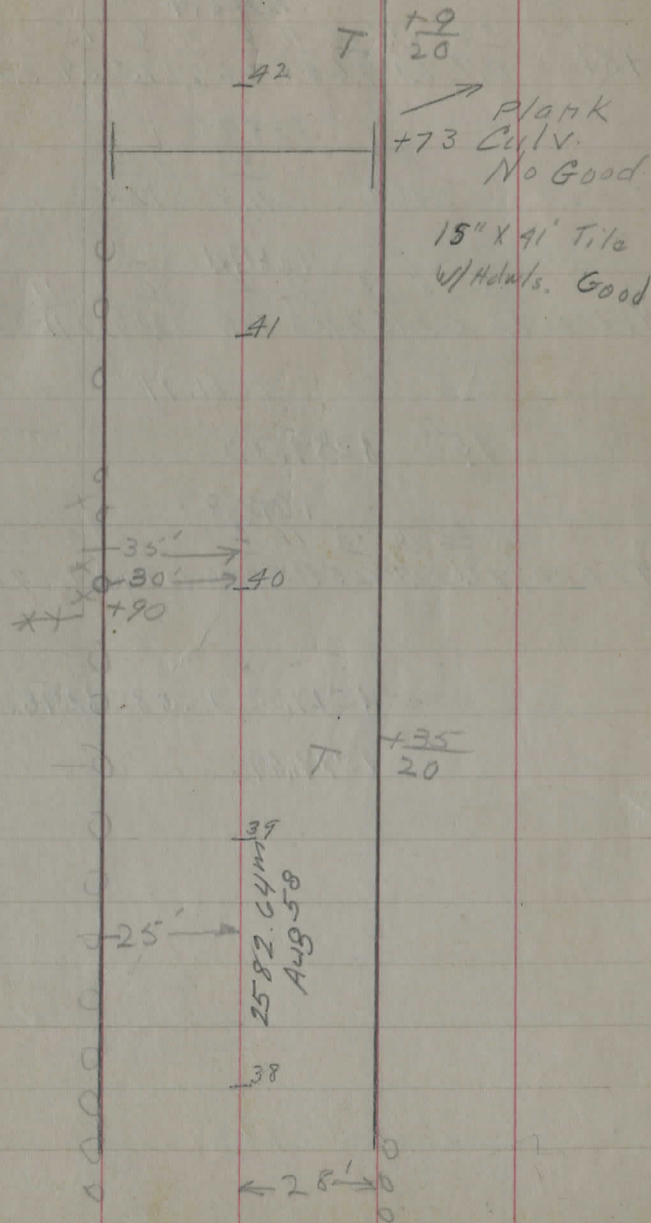 T +9/20
42
Plank
+73 Culv.
No Good
15" X 41' Tile
W/Hdwls. Good
41
35'
30' 40
+90
T +35/20
39
2582.64m
Aug-58
25'
38
28'